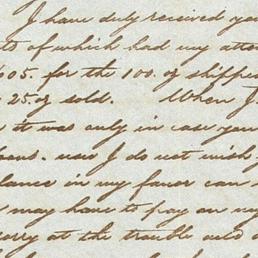 I have duly received you
ts of which had my atte
%05. for the 100. of shippe
25. of sold. When I
it was only in case you
hand. now I do not wish
lance in my favor can
may have to pay on my
orry at the trouble and